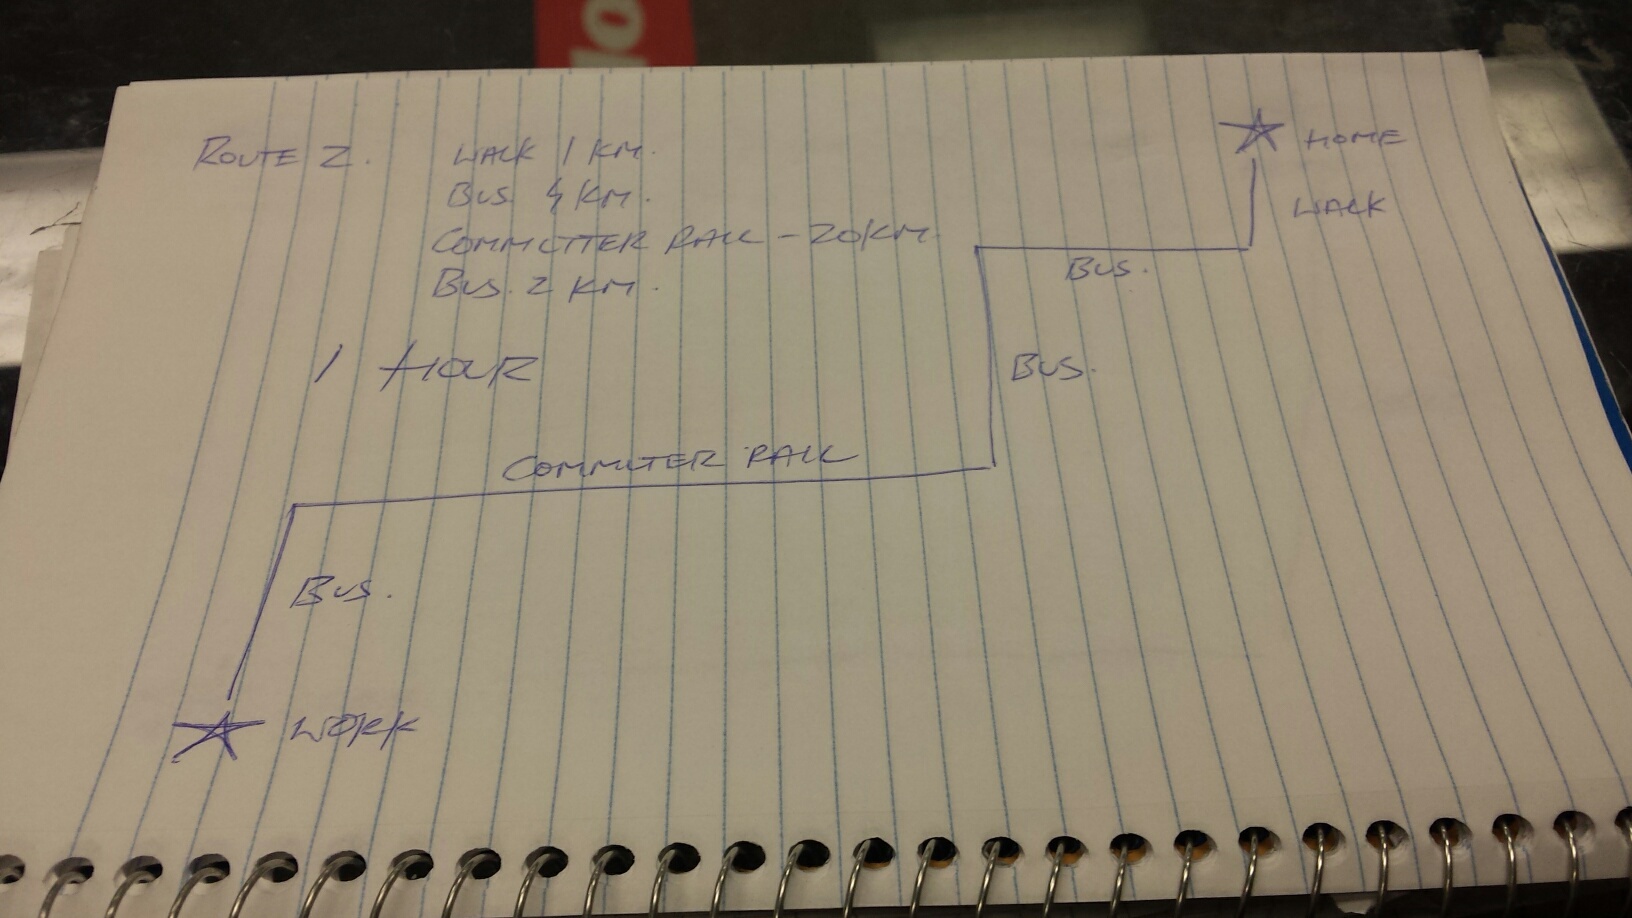 ROUTE 2. WALK 1 KM.
BUS 4 KM.
COMMUTTER RAIL - 20KM
BUS. 2 KM.
1 HOUR
HOME
WALK
BUS.
BUS.
COMMUTER RAIL
BUS.
WORK